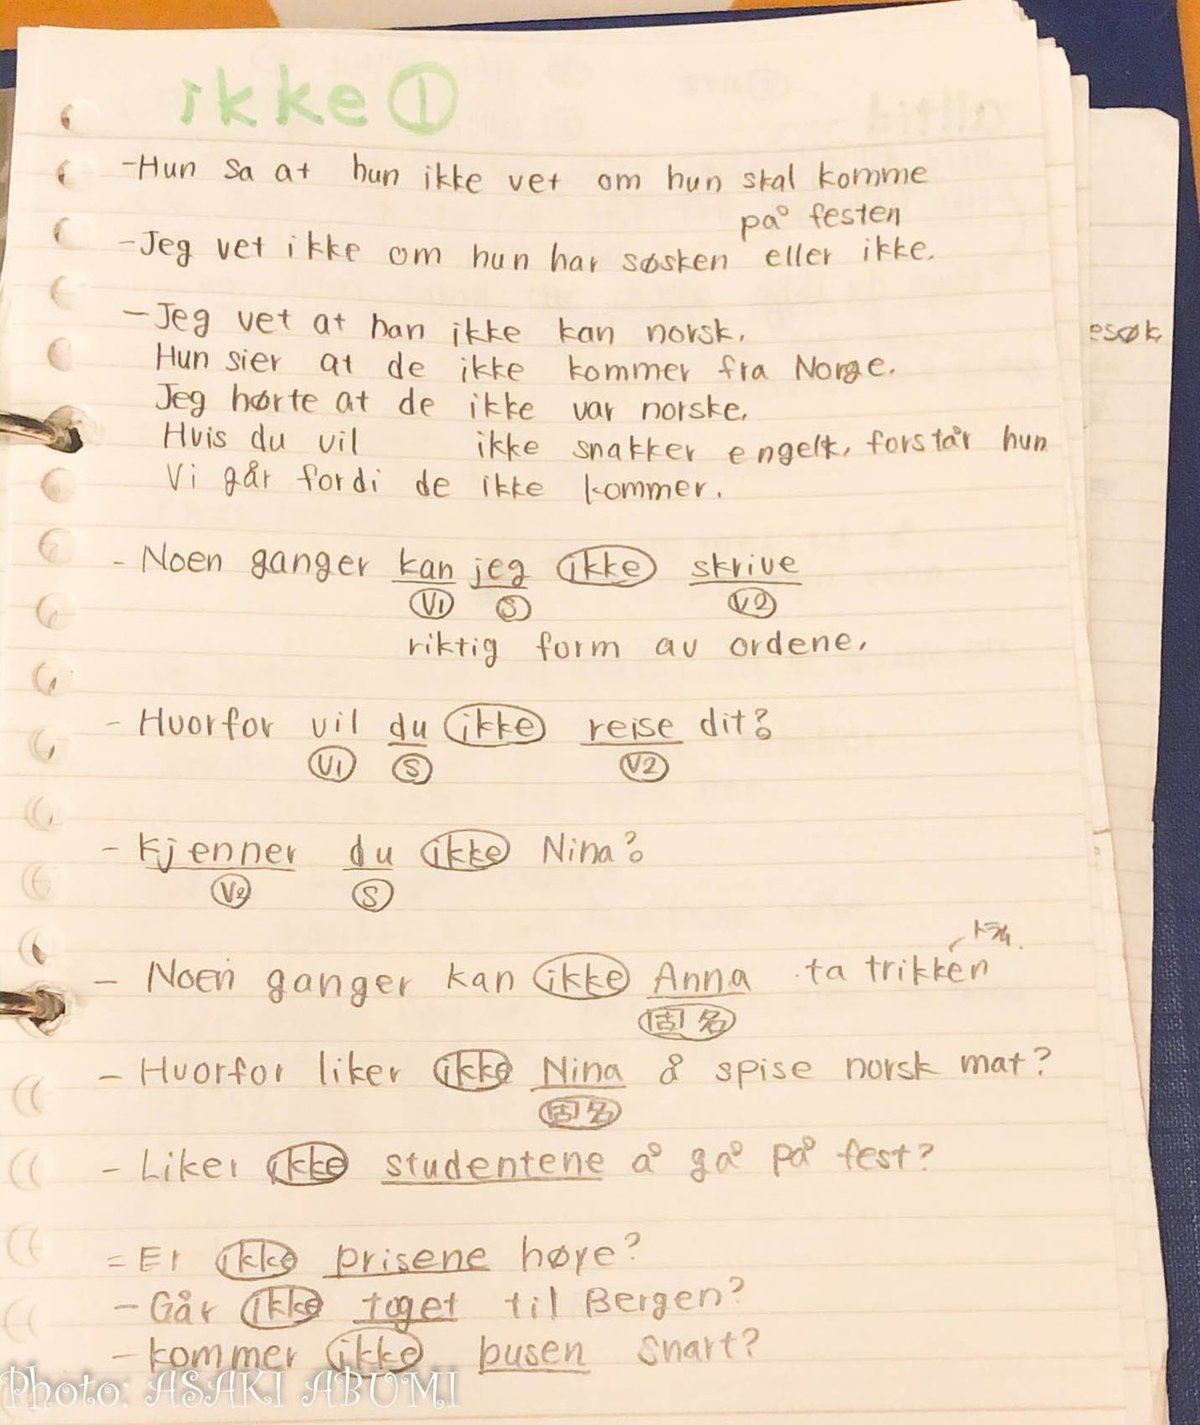 ikke①
-Hun sa at hun ikke vet om hun skal komme
på festen
-Jeg vet ikke om hun har søsken eller ikke.
-Jeg vet at han ikke kan norsk.
Hun sier at de ikke kommer fra Norge.
esøk
Jeg hørte at de ikke var norske.
Hvis du vil ikke snakker engelsk, forstår hun
Vi går fordi de ikke kommer.
- Noen ganger kan jeg ikke skrive
V1 S V2
riktig form av ordene.
- Hvorfor vil du ikke reise dit?
V1 S V2
- Kjenner du ikke Nina?
V2 S
- Noen ganger kan ikke Anna ta trikken
固名
- Hvorfor liker ikke Nina å spise norsk mat?
固名
- Liker ikke studentene å gå på fest?
= Er ikke prisene høye?
- Går ikke toget til Bergen?
- kommer ikke busen snart?
Photo: ASAKI ABUMI